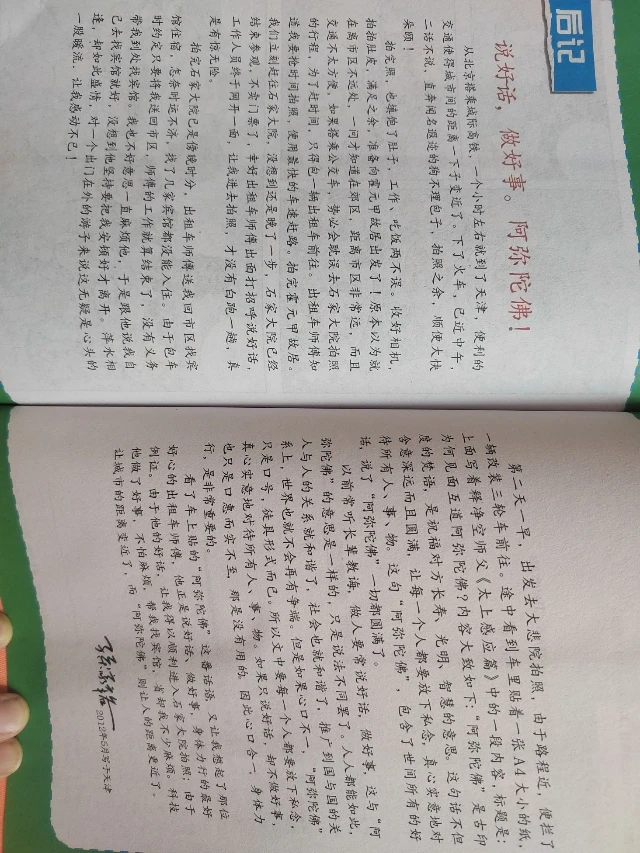 后记
说好话，做好事。阿弥陀佛！
从北京搭乘城际高铁，一个小时左右就到了天津，便利的
交通使得城市间的距离一下子变近了。下了火车，已近中午，
二话不说，直奔闻名遐迩的狗不理包子，拍照之余，顺便大快
朵颐！
拍完照，也填饱了肚子，工作、吃饭两不误。收好相机，
拍拍肚皮，满足之余，准备向霍元甲故居出发了！原本以为就
在离市区不远处，一问才知道在郊区，距离市区非常远，而且
交通不太方便。如果搭乘公交车，势必会耽误去石家大院拍照
的行程，为了赶时间，只得包一辆出租车前往。出租车师傅知
道我要抢时间拍照，便用最快的车速赶路。拍完霍元甲故居，
我们立刻赶往石家大院，没想到还是晚了一步，石家大院已经
结束参观，不卖门票了，幸好出租车师傅出面打招呼说好话，
工作人员终于网开一面，让我进去拍照，才没有白跑一趟，真
是有惊无险。
拍完石家大院已是傍晚时分，出租车师傅送我回市区找宾
馆住宿，怎奈时运不济，找了几家宾馆都没能入住。由于包车
时约定只要将我送回市区，师傅的工作就算结束了，没有义务
带我到处找宾馆。我也不好意思一直麻烦他，于是跟他说我自
己去找宾馆就好，没想到他坚持要把我安顿好才离开。萍水相
逢，却如此盛情，对一个出门在外的游子来说这无疑是心头的
一股暖流，让我感动不已！
第二天一早，出发去大悲院拍照，由于路程近，便拦了
一辆改装三轮车前往。途中看到车里贴着一张A4大小的纸，
上面写着释净空师父《太上感应篇》中的一段内容，标题是：
为何见面互道阿弥陀佛？内容大致如下：“阿弥陀佛”是古印
度的梵语，是祝福对方长寿、光明、智慧的意思。这句话不但
含意深远而且圆满，让每一个人都要放下私念，真心实意地对
待所有人、事、物。这句“阿弥陀佛”，包含了世间所有的好
话，说了“阿弥陀佛”一切都圆满了。
以前常听长辈教诲，做人要常说好话，做好事，这与“阿
弥陀佛”的意思是一样的，只是说法不同罢了。人人都能如此，
人与人的关系就和谐了，社会也就和谐了，推广到国与国的关
系上，世界也就不会再有争端。但是如果心口不一，“阿弥陀佛”
只是口号，徒具形式而已。所以文中要每一个人都要放下私念，
真心实意地对待所有人、事、物。如果只说好话，却不做好事，
也只是口惠而实不至，那是没有用的，因此心口合一，身体力
行，是非常重要的。
看了车上贴的“阿弥陀佛”这番话语，又让我想起了那位
好心的出租车师傅，他正是说好话、做好事，身体力行的最好
例证。由于他的好话，让我得以顺利进入石家大院拍照；由于
他做了好事，不怕麻烦，帮我找宾馆，省却我不少麻烦。科技
让城市的距离变近了，而“阿弥陀佛”则让人的距离更近了。
2012年5月写于天津